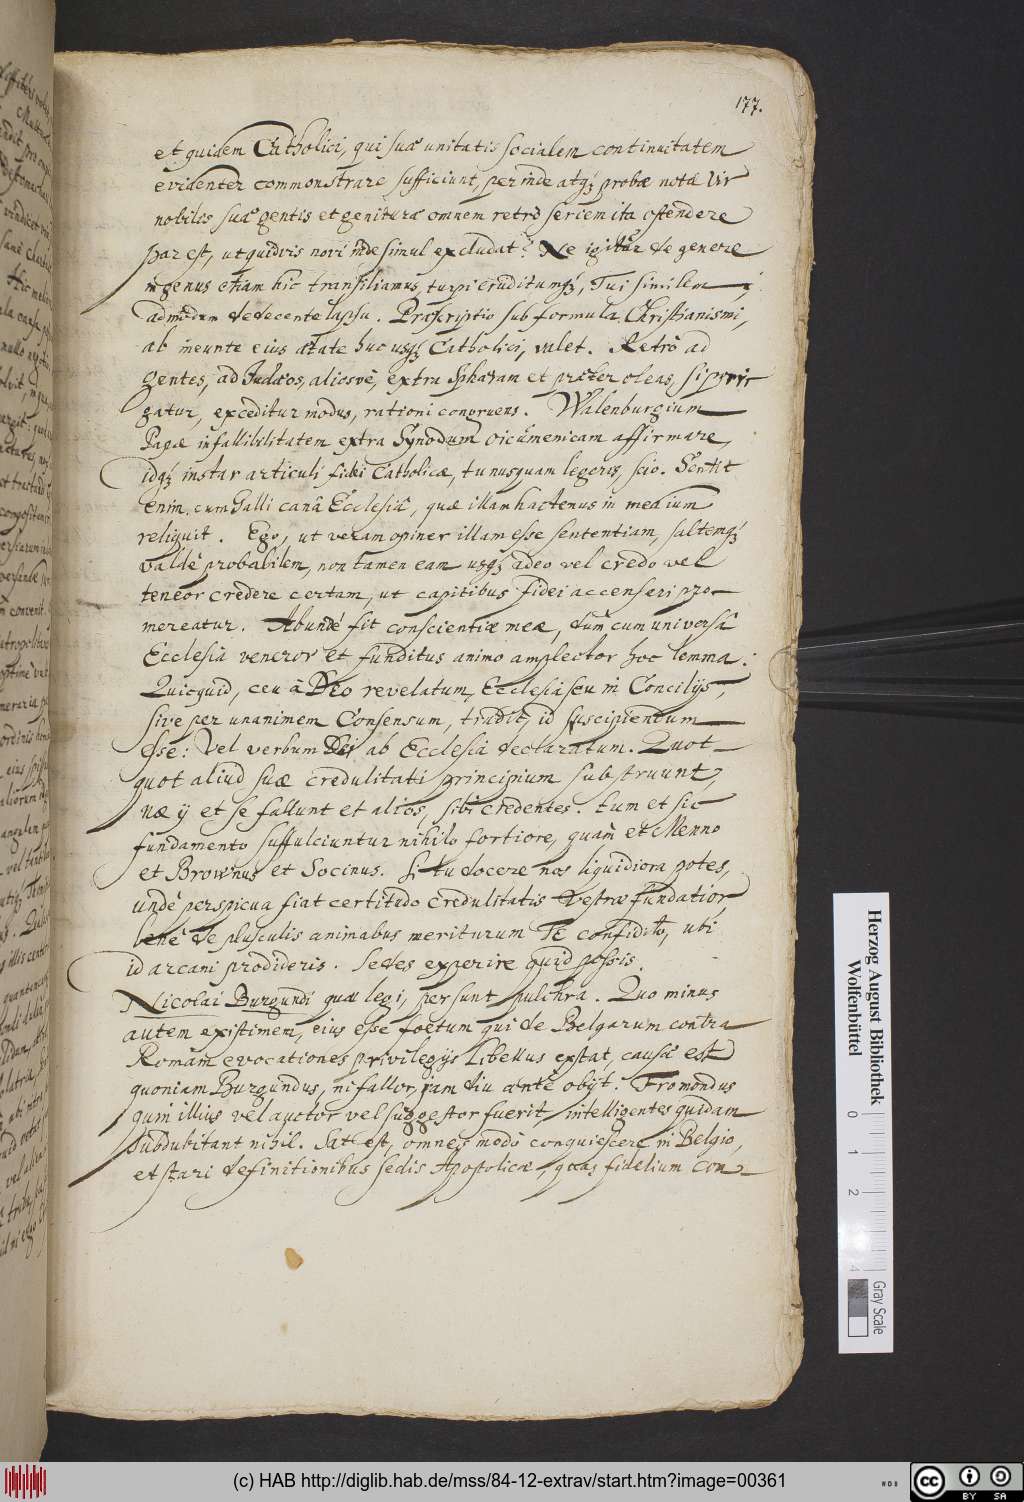 177.
et quidem Catholici, qui suâ unitatis socialem continuitatem
evidenter commonstrare sufficiunt, perinde atqȝ probæ notæ Vir
nobilis suæ gentis et genituræ omnem retrò seriem ita ostendere
par est, ut quidvis novi inde simul excludat? Ne igitur de genere
in genus etiam hic transiliamus, turpi eruditumqȝ, Tui similem
admodum dedecente lapsu. Præscriptio sub formula Christianismi,
ab ineunte eius ætate huc usqȝ Catholici, valet. Retrò ad
gentes, ad Judæos, aliosvè, extra Sphæram et præter oleas, si porri-
gatur, exceditur modus, rationi congruens. Walenburgium
Papæ infallibilitatem extra Synodum oicumenicam affirmare,
idqȝ instar articuli fidei Catholicæ, tu nusquam legeris, scio. Sentit
enim cum Galli canâ Ecclesiâ, quæ illam hactenus in medium
reliquit. Ego, ut veram opiner illam esse sententiam, saltemqȝ
valdè probabilem, non tamen eam usqȝ adeo vel credo vel
teneor credere certam, ut capitibus fidei accenseri pro-
mereatur. Abundè fit conscientiæ meæ, dum cum universâ
Ecclesiâ veneror et funditus animo amplector hoc lemma:
Quicquid, ceu à Deo revelatum, Ecclesia seu in Concilijs,
sive per unanimem Consensum, tradit, id suscipiendum
esse: Vel verbum Dei ab Ecclesiâ declaratum. Quot-
quot aliud suæ credulitati principium substruunt,
næ ij et se fallunt et alios, sibi credentes. Eum et sic
fundamento suffulciuntur nihilo fortiore, quàm et Menno
et Brownus et Socinus. Si tu docere nos liquidiora potes,
undè perspicua fiat certitudo credulitatis Vestræ fundatior
benè de plusculis animabus meriturum Te confidito, ubi
id arcani prodideris. Sedes experire quid possis.
Nicolai Burgundi quæ legi, persunt pulchra. Quo minus
autem existimem, eius esse foetum qui de Belgarum contra
Romam evocationes privilegijs Libellus exstat, causa est
quoniam Burgundus, ni fallor, jam diu antè obijt. Fromondus
quin illius vel auctor vel suggestor fuerit, intelligentes quidam
subdubitant nihil. Sat est, omneis modò conquiescere in Belgio,
et stari definitionibus sedis Apostolicæ, quas fidelium con-
Herzog August Bibliothek
Wolfenbüttel
0 1 2 4
Gray Scale
(c) HAB http://diglib.hab.de/mss/84-12-extrav/start.htm?image=00361
cc BY SA